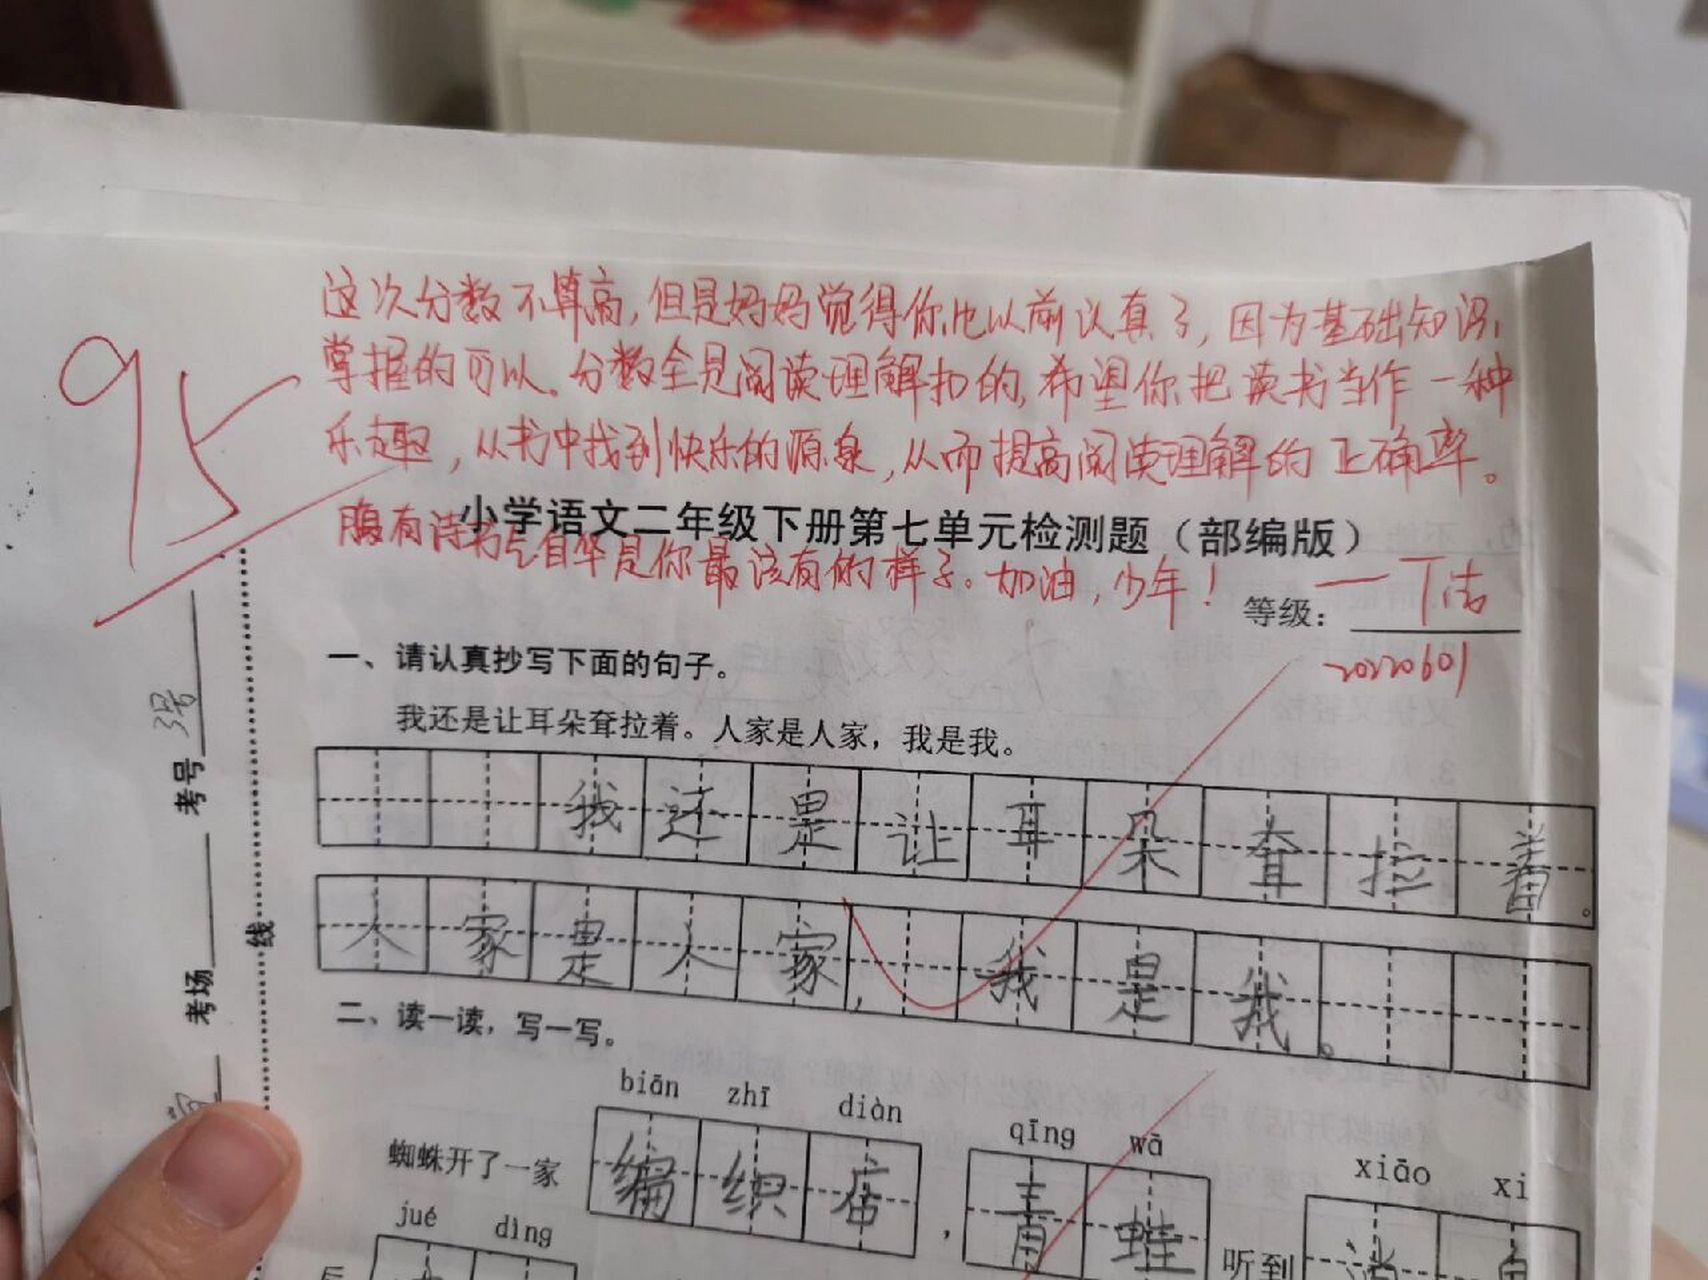 95
这次分数不算高,但是妈妈觉得你比以前认真了,因为基础知识
掌握的可以。分数全是阅读理解扣的,希望你把读书当作一种
乐趣,从书中找到快乐的源泉,从而提高阅读理解的正确率。
小学语文二年级下册第七单元检测题(部编版)
腹有诗书气自华是你最该有的样子。加油,少年!
等级:
20220601
一、请认真抄写下面的句子。
我还是让耳朵耷拉着。人家是人家,我是我。
我还是让耳朵耷拉着。
人家是人家,我是我。
二、读一读,写一写。
biān zhī diàn
qīng wā
xiāo xi
蜘蛛开了一家编织店,青蛙听到消息
jué dìng
考号
考场
线